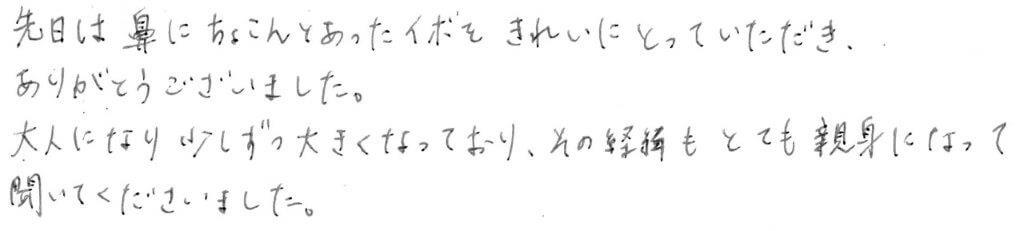 先日は鼻にちょこんとあったイボを きれいにとっていただき、
ありがとうございました。
大人になり少しずつ大きくなっており、その経緯もとても親身になって
聞いてくださいました。